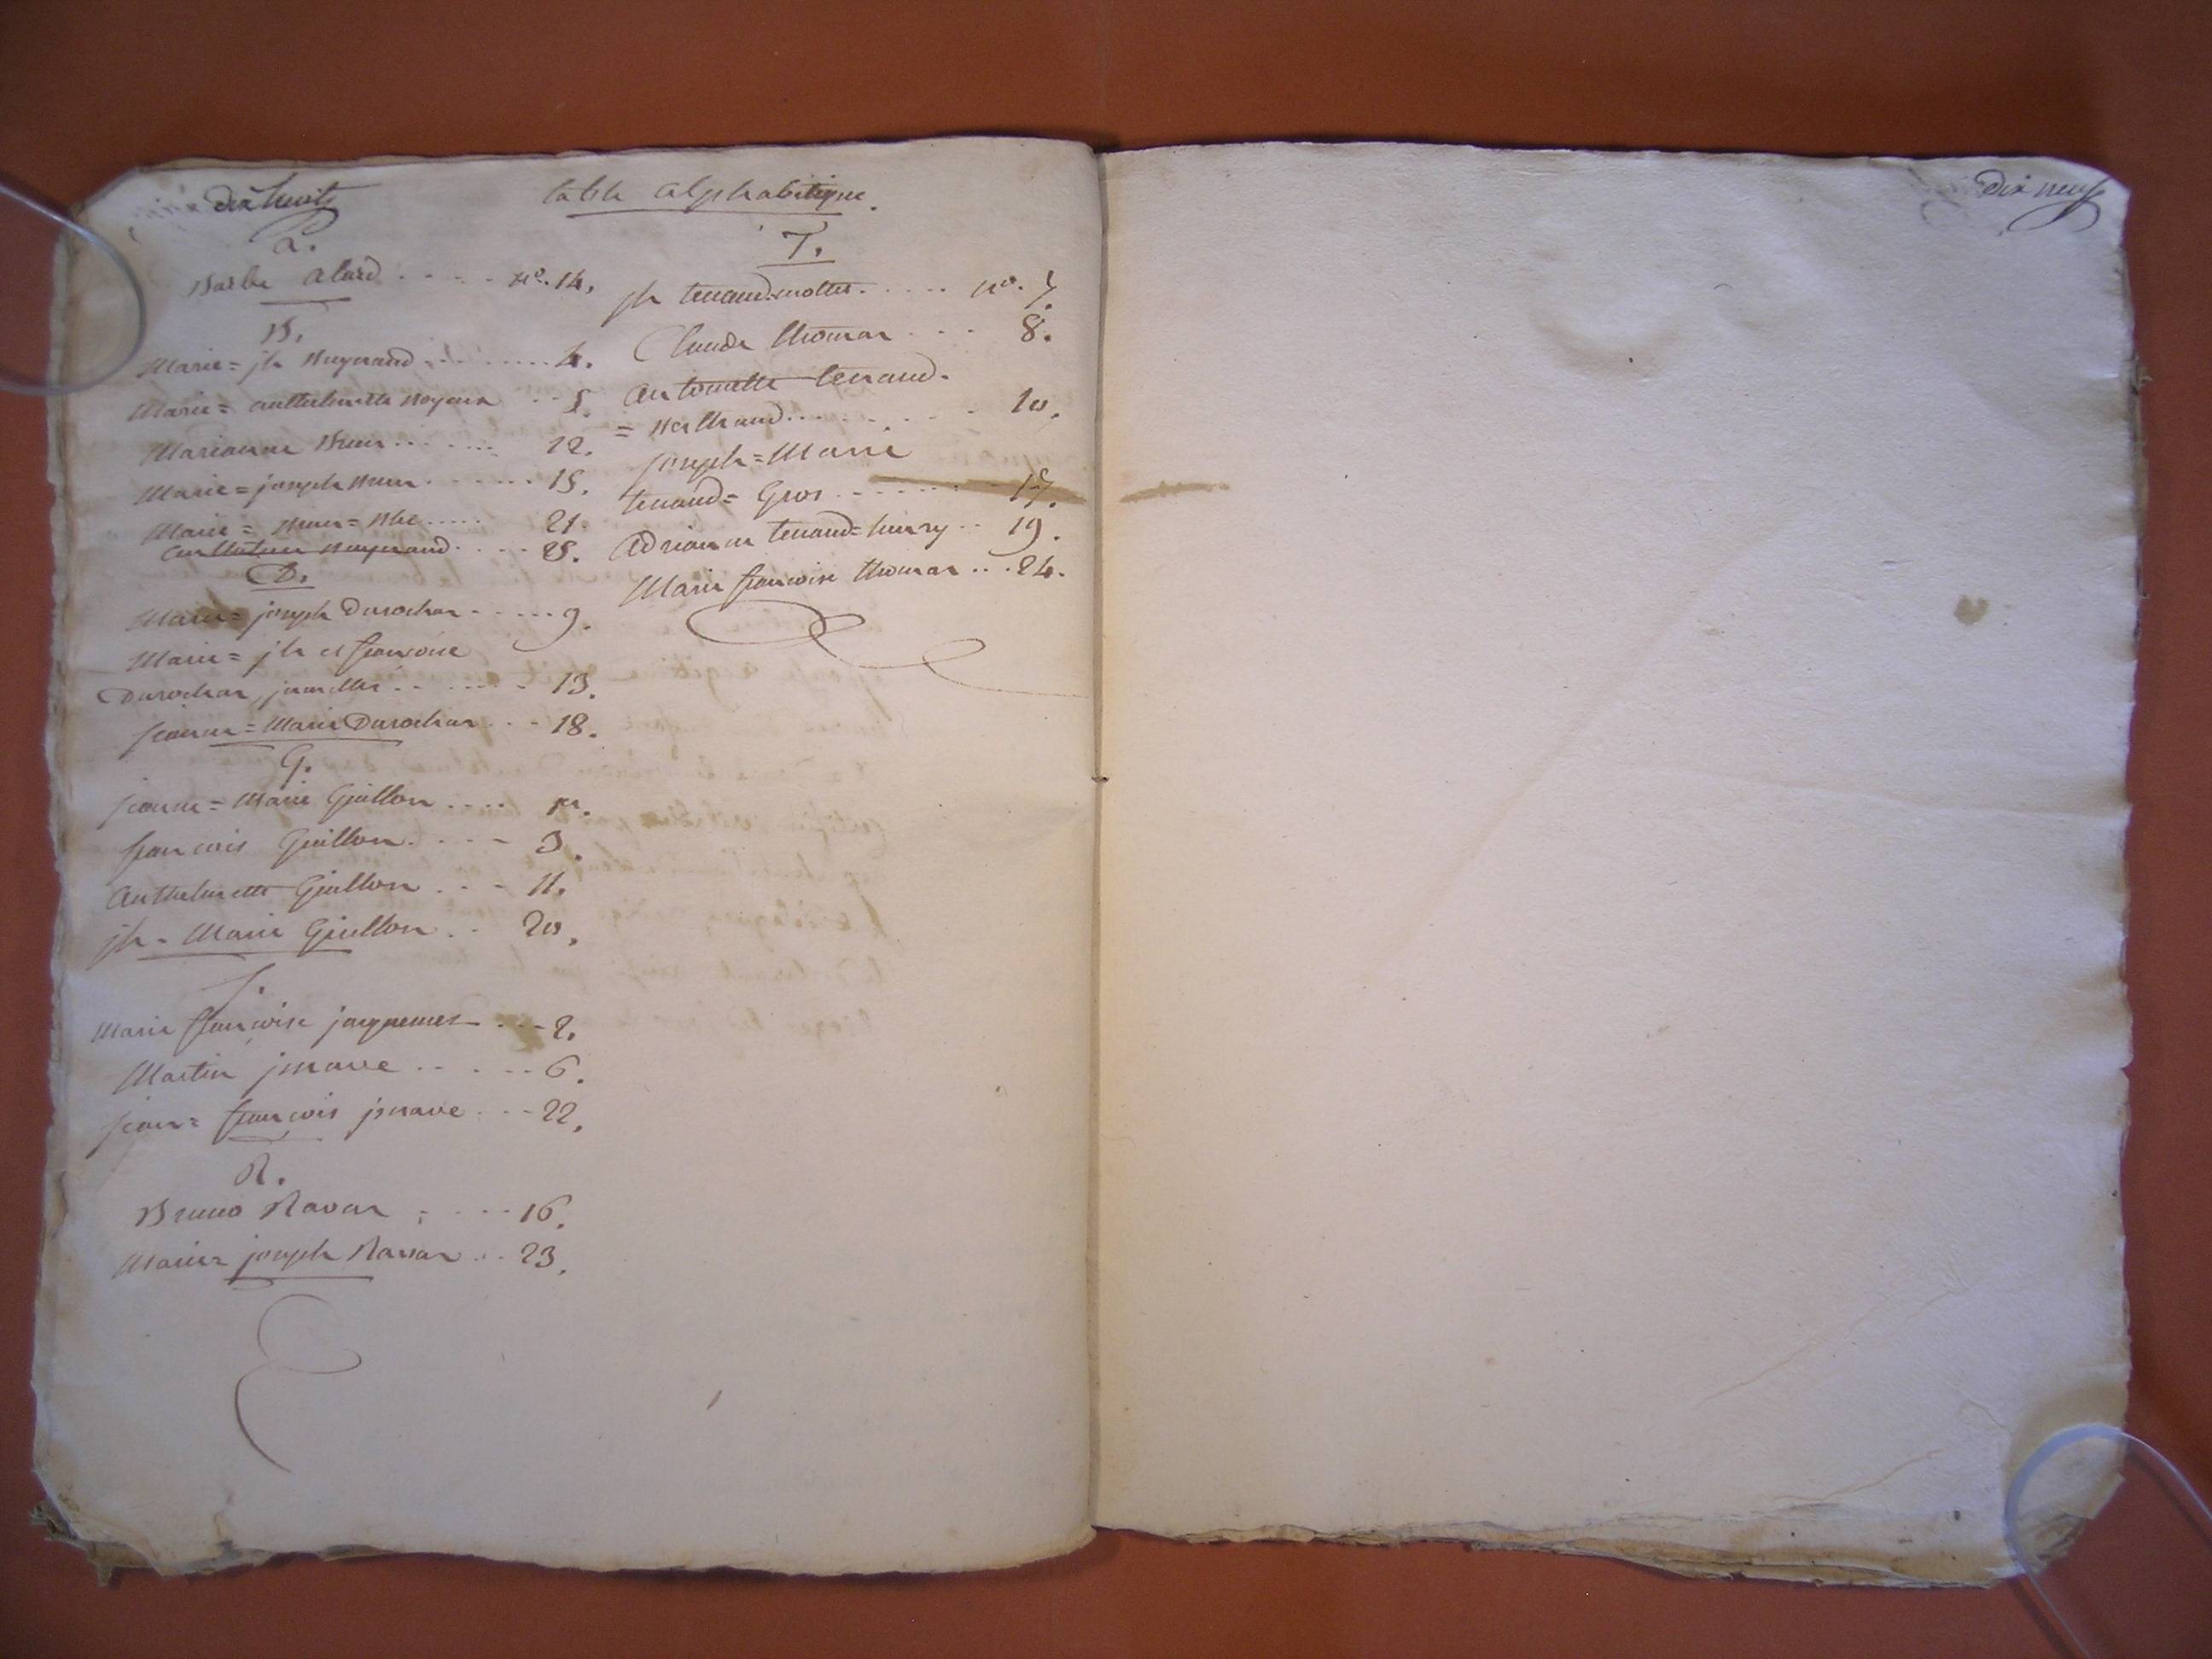 dix huit
table alphabetique.
a.
Barbe alard ..... N°. 14.
B.
Marie= jh Beynaud ........ 4.
Marie= anthelmette Boyeux ... 5.
Marianne Brun ....... 12.
Marie= joseph Brun ....... 15.
Marie= Brun= ..... 21.
anthelme Beynaud ..... 25.
D.
Marie= joseph Durochar ...... 9.
Marie= jh et françoise
Durochar, jumelles ....... 13.
jeanne= Marie Durochar ... 18.
G.
jeanne= Marie Guillon .... 1er.
françois Guillon .... 3.
anthelmette Guillon ... 11.
jh= Marie Guillon ... 20.
J.
Marie françoise jacquemet ... 2.
Martin jnave ..... 6.
jean= françois jnave ... 22.
R.
Bruno Ravar ..... 16.
Marie= joseph Ravar ... 23.
T.
jh tenand=mottet ..... N°. 7.
Claude thomas ... 8.
antoinette tenand
= Berthand ....... 10.
joseph= Marie
tenand= Gros ....... 17.
adrianne tenand= henry ... 19.
Marie françoise thomas ... 24.
Dix neuf